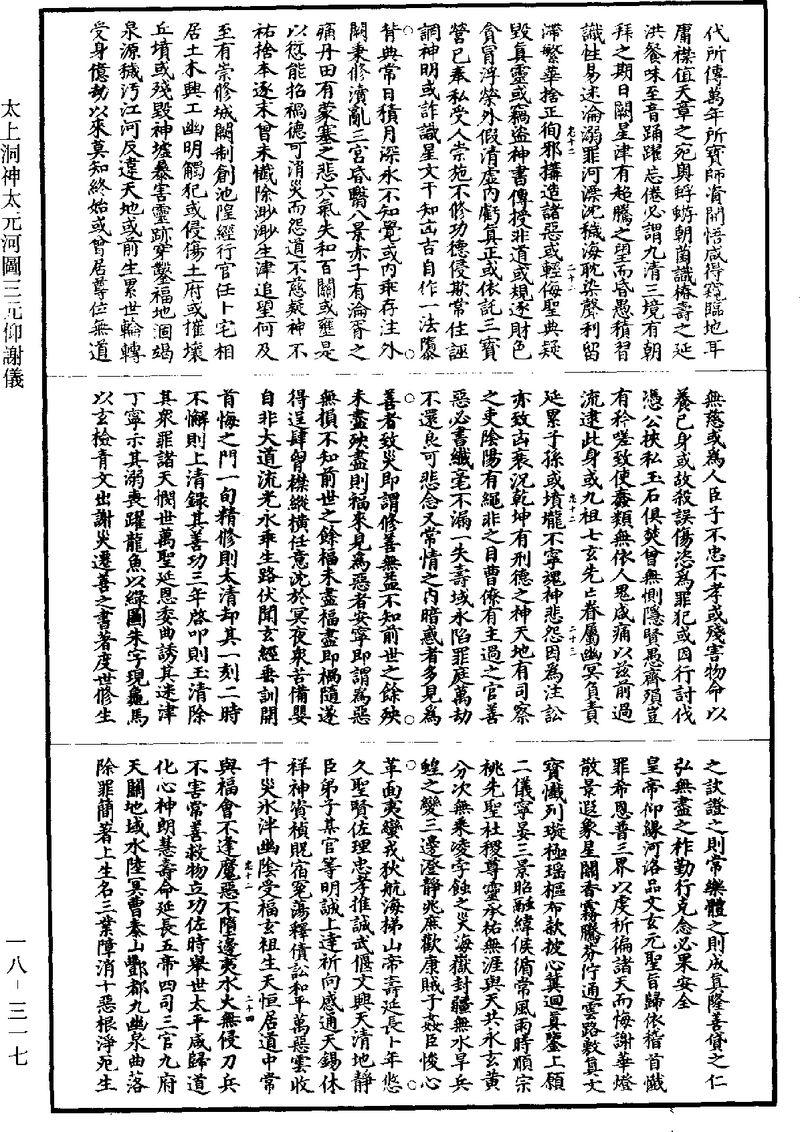 代所傳萬年所寶師資開悟咸得窺臨地耳
庸襟值天章之宛奧蜉蝣朝菌識椿壽之延
洪餐味至音踊躍忘倦必謂九清三境有朝
拜之期日闕星津有超騰之望而昏愚積習
識性易迷淪溺罪河漂沈穢海耽染聲利留
滯繁華捨正徇邪構造諸惡或輕侮聖典疑
毀真靈或竊盜神書傳授非道或規逐財色
貪冒浮榮外假清虛內虧真正或依託三寶
營已奉私受人崇施不修功德侵欺常住誣
調神明或詐識星文干知凶吉自作一法隳
背典常日積月深永不知覺或內乖存注外
闕秉修瀆亂三宮昏翳八景赤子有淪胥之
痛丹田有蒙塞之悲六氣失和百關或壅是
以愆能招禍德可消災而怨道不慈疑神不
祐捨本逐末曾未懺除渺渺生津追望何及
至有崇修城闕制創池隍經行官任卜宅相
居土木興工幽明觸犯或侵傷土府或摧壞
丘墳或殘毀神墟暴害靈跡穿鑿福地涸竭
泉源穢污江河反違天地或前生累世輪轉
受身億劫以來莫知終始或曾居尊位無道
無慈或為人臣子不忠不孝或殘害物命以
養己身或故殺誤傷恣為罪犯或因行討伐
憑公挾私玉石俱焚曾無惻隱賢愚齊殞豈
有矜嗟致使蠢類無依人鬼咸痛以茲前過
流逮此身或九祖七玄先亡眷屬幽冥負責
延累子孫或墳壠不寧魂神悲怨因為注訟
亦致凶衰況乾坤有刑德之神天地有司察
之吏陰陽有繩非之目曹僚有主過之官善
惡必書纖毫不漏一失壽域永陷罪庭萬劫
不還良可悲念又常情之內暗惑者多見為
善者致災即謂修善無益不知前世之餘殃
未盡殃盡則福來見為惡者安寧即謂為惡
無損不知前世之餘福未盡福盡即禍隨遂
得逞肆胷襟縱橫任意沈於冥夜衆苦備嬰
自非大道流光永乖生路伏聞玄經垂訓開
首悔之門一旬精修則太清却其一刻二時
不懈則上清錄其善功三年啓叩則玉清除
其衆罪諸天憫世萬聖延恩委曲誘其迷津
丁寧示其溺喪躍龍魚以綠圖朱字現龜馬
以玄檢青文出謝災遷善之書著度世修生
之訣證之則常樂體之則成真隆善貸之仁
弘無盡之祚勤行克念必果安全
皇帝仰緣河洛品文玄元聖旨歸依稽首懺
罪希恩普三界以虔祈徧諸天而悔謝華燈
散景遐象星關香霧騰芬佇通雲路敷真文
寶懺列璇極瑤樞布款披心冀迴真鑒上願
二儀寧晏三景昭融緯候循常風雨時順宗
祧先聖社稷尊靈承祐無涯與天共永玄黃
分次無乘凌孛蝕之災海嶽封疆無水旱兵
蝗之變三邊澄靜兆庶歡康賊子姦臣悛心
革面夷蠻戎狄航海梯山帝壽延長卜年悠
久聖賢佐理忠孝推誠武偃文興天清地靜
臣弟子某官等明誠上達祈向感通天錫休
祥神資禎貺宿冤蕩釋債訟和平萬惡雲收
千災氷泮幽陰受福玄祖生天恒居道中常
與福會不逢魔惡不墮邊夷水火無侵刀兵
不害常善救物立功佐時舉世太平咸歸道
化心神朗慧壽命延長五帝四司三官九府
天關地域水陸冥曹泰山酆都九幽泉曲落
除罪簡著上生名三業障消十惡根淨宛生
太上洞神太元河圖三元仰謝儀
一八—三一七